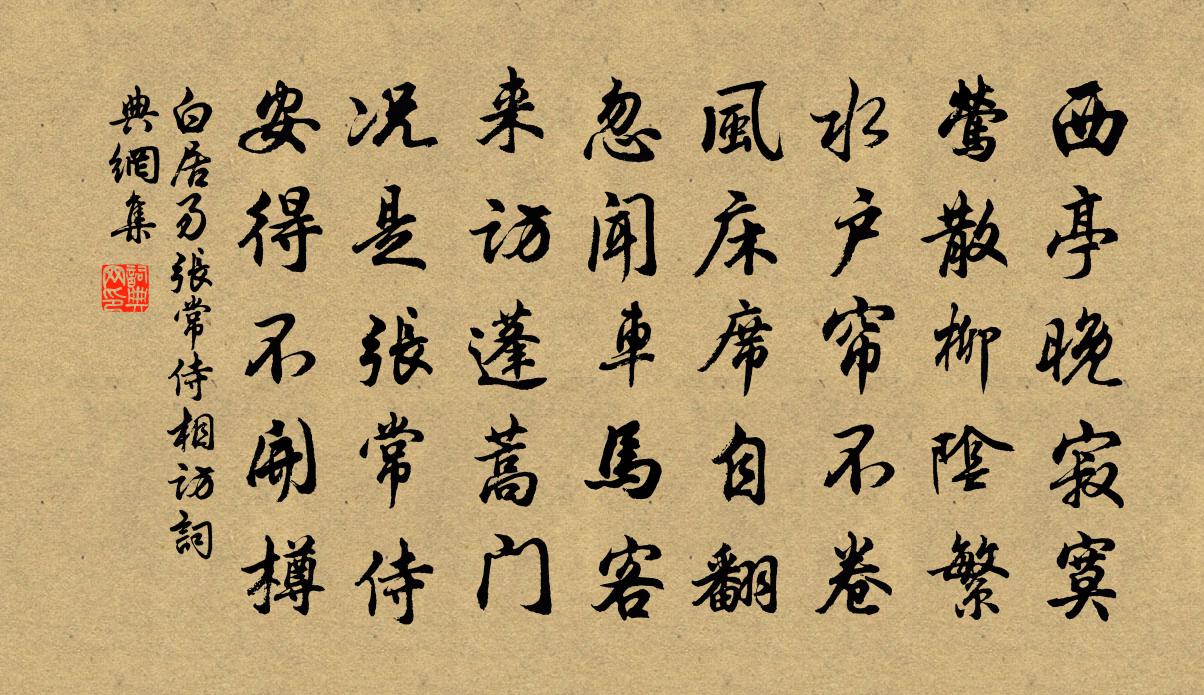 西亭晚寂寞
莺散柳陰繁
水户帘不卷
風床席自翻
忽聞車馬客
来訪蓬蒿门
况是張常侍
安得不開樽
白居易張常侍相訪詞
典網集
詞典
网印